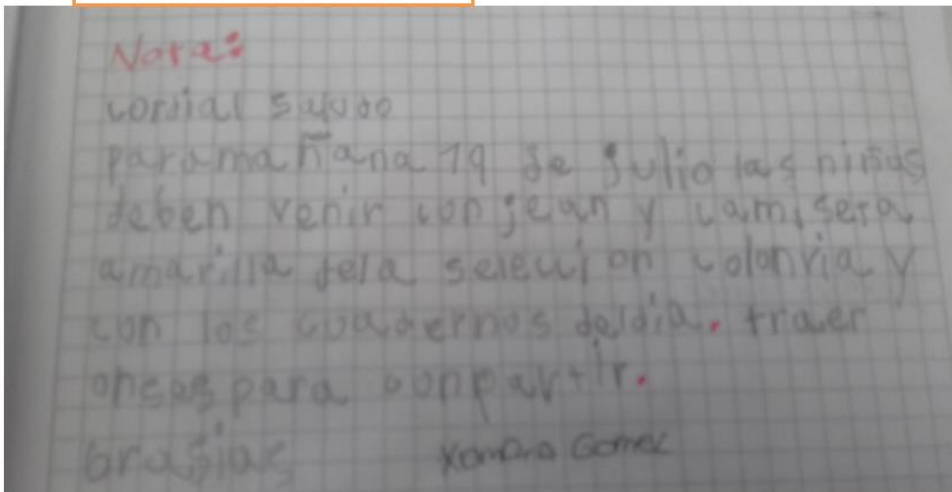 Nota:
cordial saludo
para mañana 19 de Julio las niñas
deben venir con jean y camiseta
amarilla dela selecion colonvia y
con los cuadernos deldia. traer
onsas para conpartir.
Grasias Xomara Gomez